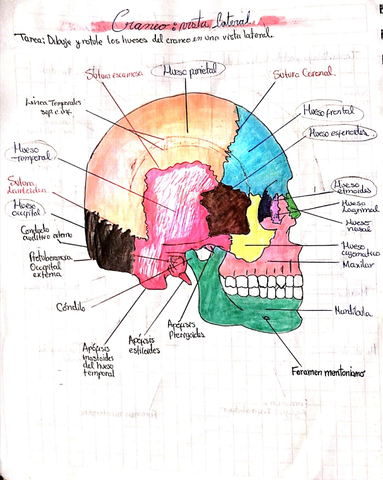 Craneo: vista lateral
Tarea: Dibuje y rotule los huesos del craneo en una vista lateral.
Sutura escamosa
Hueso parietal
Sutura Coronal.
Lineas Temporales
sup e inf.
Hueso frontal
Hueso esfenoides
Hueso
temporal
Sutura
Hueso
occipital
Conducto
auditivo externo
Protuberancia
Occipital
externa
Cóndilo
Apófisis
mastoides
del hueso
temporal
Apófisis
estiloides
Apófisis
Pterigoides
Hueso
etmoides
Hueso
Lagrimal
Hueso
nasal
Hueso
cigomatico
Maxilar
Mandíbula
Foramen mentoniano